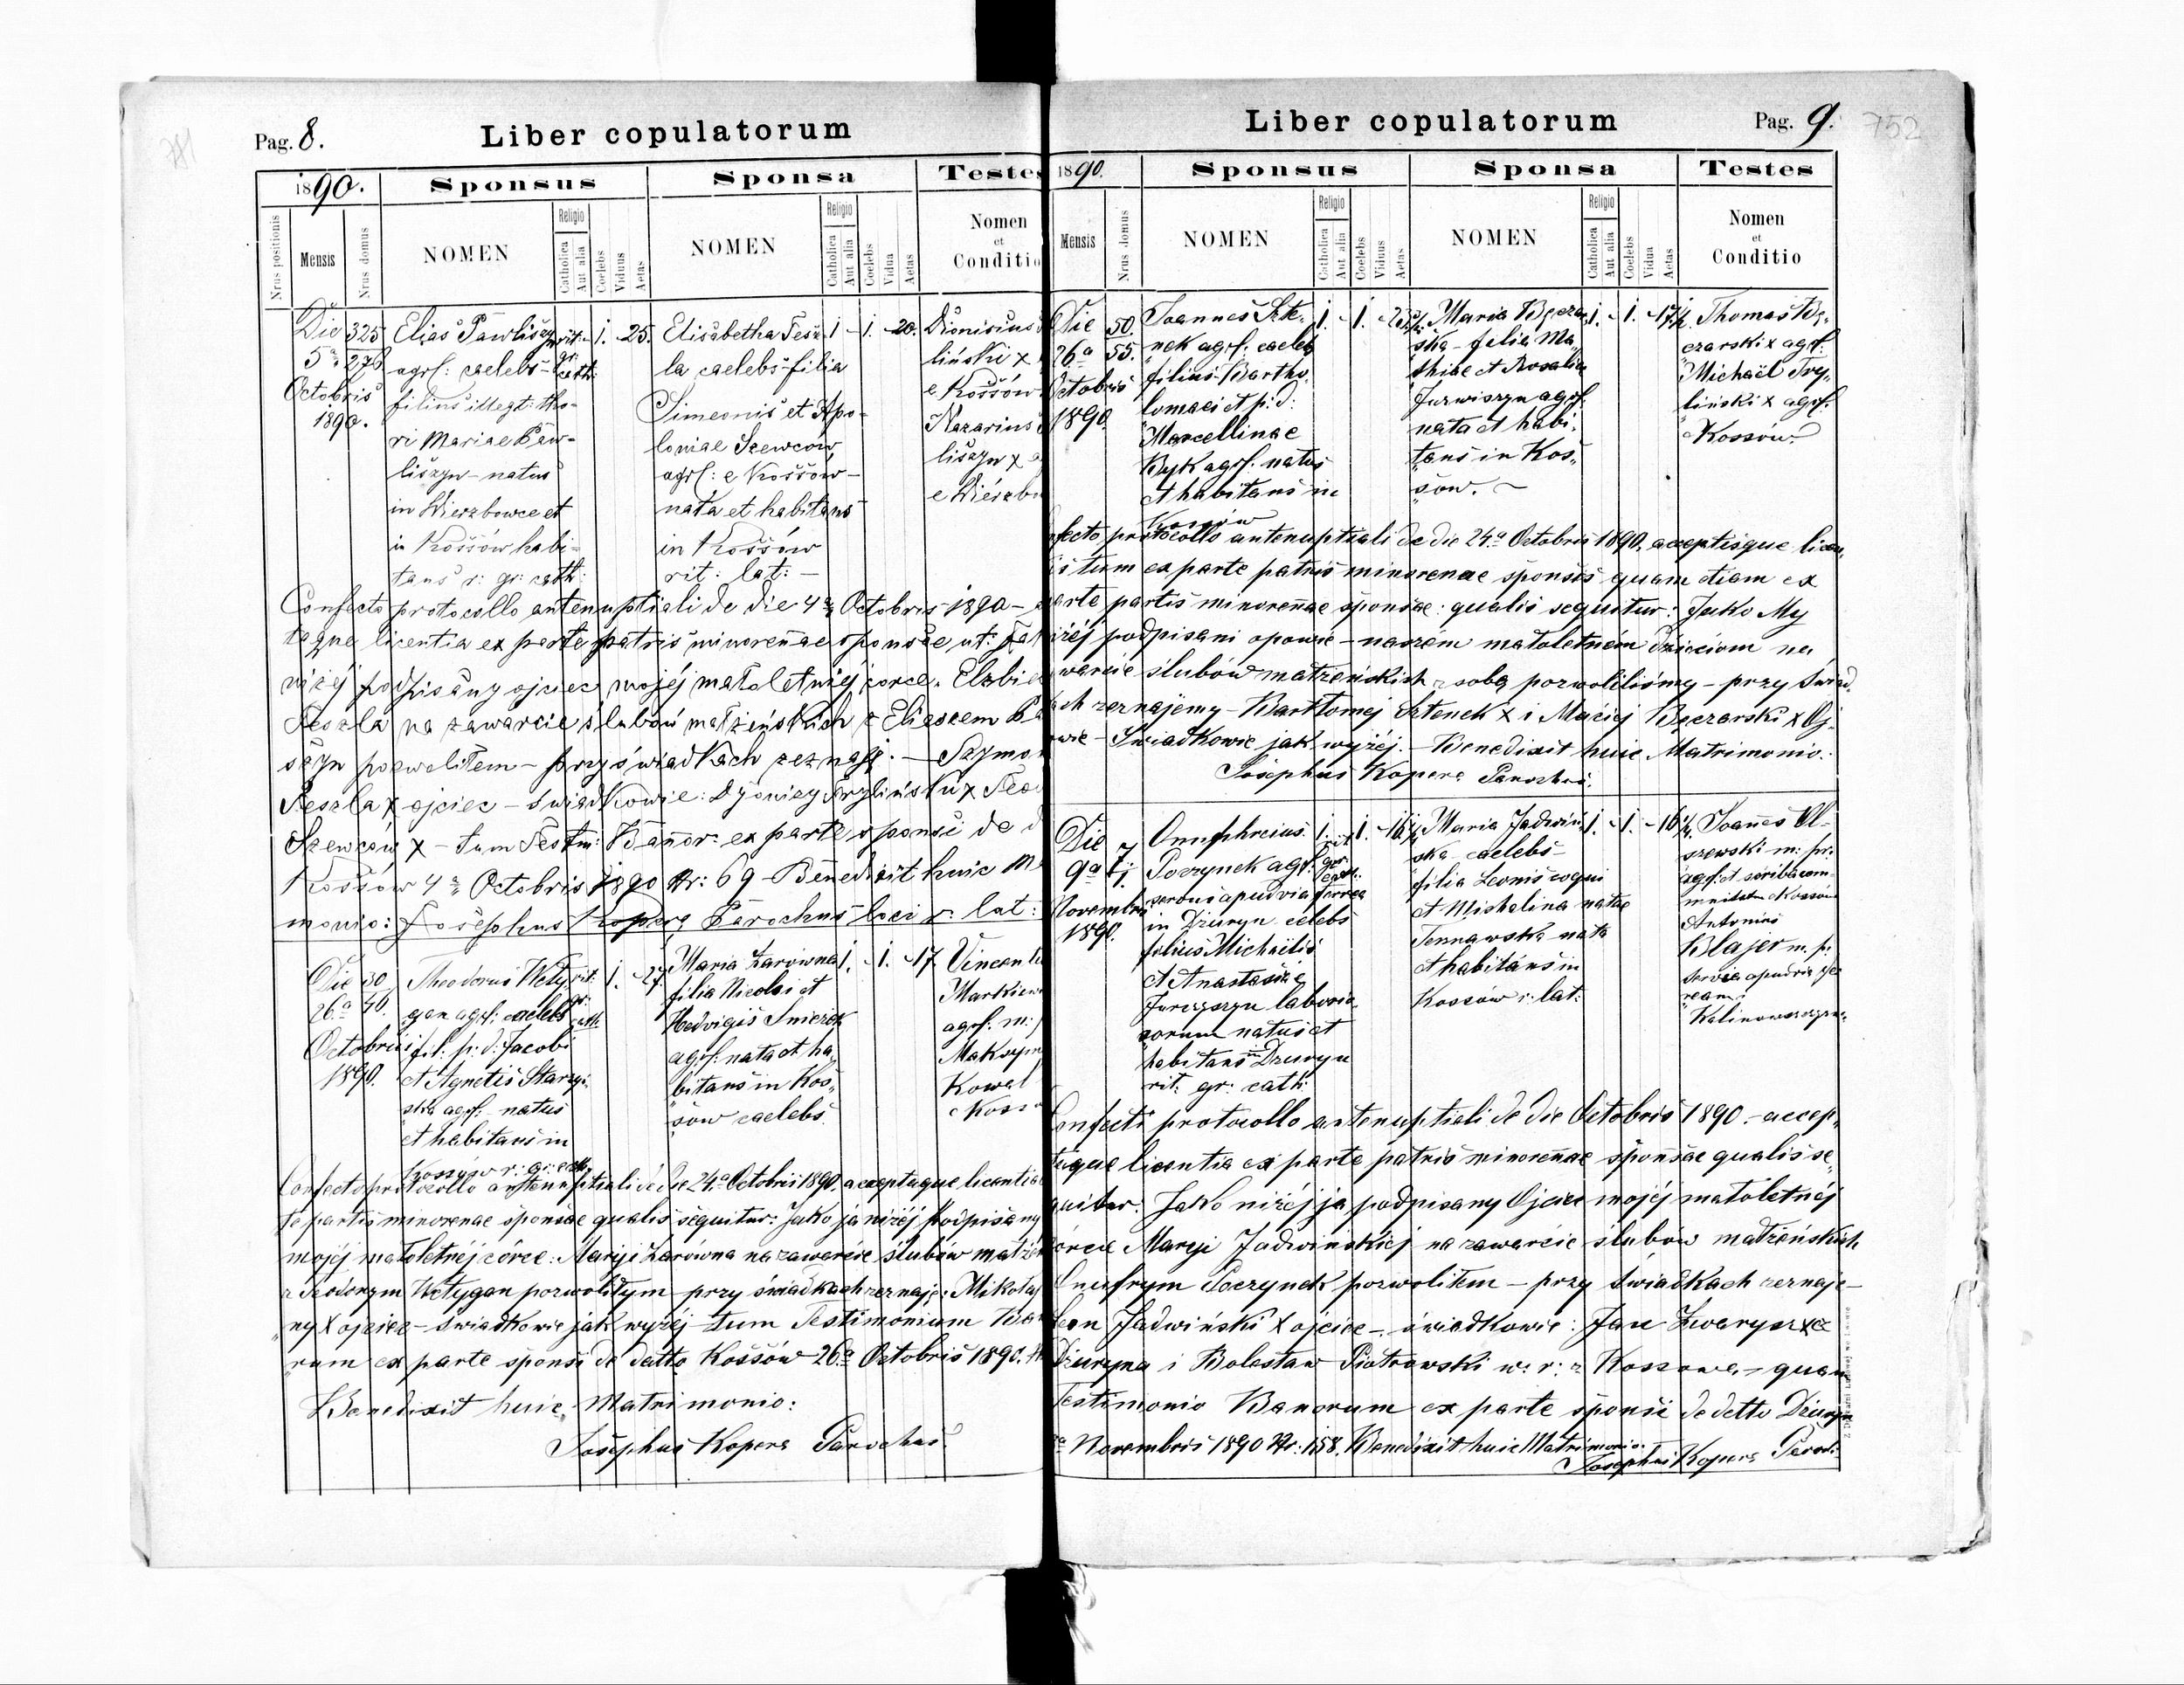 Pag. 8.
Liber copulatorum
1890.
Sponsus
Sponsa
Testes
Nrus positionis
Mensis
Nrus domus
NOMEN
Religio
Catholica
Aut alia
Coelebs
Viduus
Aetas
NOMEN
Religio
Catholica
Aut alia
Coelebs
Vidua
Aetas
Nomen
et
Conditio
Die
5a
Octobris
1890.
325
276
Elias Pawliszyn
agrl: caelebs
filius illegt: tho-
ri Mariae Paw-
liszyn - natus
in Wierzbowce et
in Kossów habi-
tans r: gr: cath:
rit:
gr:
cath:
1. 25.
Elisabetha Tesz
la caelebs filia
Simeonis et Apo-
loniae Szewców
agrl: e Kossów -
nata et habitans
in Kossów
rit: lat: -
1 - 1. - 20.
Dionisius
liński x
e Kossów
Nazarius
liszyn x
e Wierzbo
Confecto protocollo antenuptiali de die 4a Octobris 1890 -
taque licentia ex parte patris minorenae sponsae ut:
niżej podpisany ojciec mojéj małoletniéj córce. Elzbie
Teszla na zawarcie ślubów małżeńskich z Eliaszem Pa
szyn pozwoliłem - przy świadkach zeznaję. - Szymon
Teszla x ojciec - świadkowie: Dyonizy Trylinski x Teo
Szewców x - tum Testm: Bannor: ex parte sponsi de d
Kossów 4a Octobris 1890 Nr: 69 - Benedixit huic M
monio: Josephus Kopera Parochus loci r. lat:
Die
26a
Octobris
1890.
30
40.
Theodorus Wety
gan agrl: caelebs
fil: p: d: Jacobi
et Agnetis Starzyń
ska agrl: natus
et habitans in
Kossów r: gr: cath:
rit:
gr:
cath:
1. - 27.
Maria Żarówna
filia Nicolai et
Hedvigis Smerek
agrl: nata et ha
bitans in Kos„
„sow caelebs.
1. - 1. - 17.
Vincenti
Markiew
agrl. m: p
Maksym
Kowal
e Koss
Confecto protocollo antenuptiali de die 24a Octobris 1890. acceptaque licentia
te partis minorenae sponsae qualis sequitur: Jako ja niżéj podpisany
mojéj małoletnéj córce: Maryi Żarówna na zawarcie ślubów małżeń
z Teodorym Wetygan pozwoliłym - przy świadkach zeznaję: Mikołaj
ny x ojciec - Świadkowie jak wyżéj - tum Testimonium Ban
rum ex parte sponsi de detto Kossów 26a Octobris 1890.
Benedixit huic Matrimonio:
Josephus Kopera Parochus
Liber copulatorum
Pag. 9.
752
1890.
Sponsus
Sponsa
Testes
Mensis
Nrus domus
NOMEN
Religio
Catholica
Aut alia
Coelebs
Viduus
Aetas
NOMEN
Religio
Catholica
Aut alia
Coelebs
Vidua
Aetas
Nomen
et
Conditio
Die
26a
Octobris
1890.
50.
55.
Joannes Szte„
„nek agrl: caeleb
filius Bartho„
lomaei et p: d:
Marcellinae
Byk agrl. natus
et habitans in
Kossów
1. - 1.
Maria Bęczar
ska - filia Ma„
thiae et Rosalia
Jurwiszyn agrl.
nata et habi„
tans in Kos„
„sow. -
1. - 1. - 17
Thomas Bę„
czarski x agrl:
Michaël Try„
liński x agrl.
Kossów.
fecto protocollo antenuptiali de die 24a Octobris 1890. acceptisque licen„
is tum ex parte patris minorenae sponsis quam etiam ex
arte partis minorenae sponsae: qualis sequitur: Jako My
iżéj podpisani opowie - naszém małoletném dzieciom na
warcie ślubów małżeńskich z sobą pozwoliliśmy - przy świad„
ach zeznajemy - Bartłomej Sztenek x i Maciej Bęczarski x Oj„
owie - Świadkowie jak wyżéj. - Benedixit huic Matrimonio:
Josephus Kopera Parochus.
Die
9a
Novembris
1890.
Onuphreius
Poczynek agrl:
servus apud via ferrea
in Dzuryn celebs
filius Michaëlis
et Anastasiae
Jurczyszyn laboria„
„zorum natus et
habitans in Dzuryn
rit: gr: cath:
1. - 1. - 16
Maria Jadwiń„
ska caelebs -
filia Leonis coqui
et Michalina natae
Tennawska nata
et habitans in
Kossów r: lat:
1. - 1. - 16
Joanes Ol-
szewski m: pr:
agrl: et scriba com-
Antonius
Blajer m. p:
servia apud via fer
ream
Confecti protocollo antenuptiali de die Octobris 1890 - accep„
taque licentia ex parte patris minorenae sponsae qualis se„
quitur. Jako niżéj ja podpisany Ojciec mojéj małoletnéj
córce Maryi Jadwińskiéj na zawarcie ślubów małżeńskich
Onufrym Poczynek pozwoliłem - przy świadkach zeznaje -
Leon Jadwiński x ojciec - świadkowie: Jan Zwarycz x z
Dzuryna i Bolesław Piotrowski w: r: z Kossowa, - quam
Testimonio Banorum ex parte sponsi de detto Dzuryn
Novembris 1890 Nr: 158. Benedixit huic Matrimonio:
Josephus Kopera Paroch: